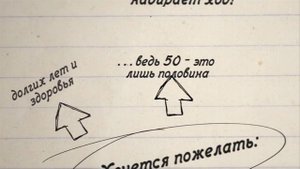 набирает ход!
...ведь 50 - это
лишь половина
долгих лет и
здоровья
Хочется пожелать: